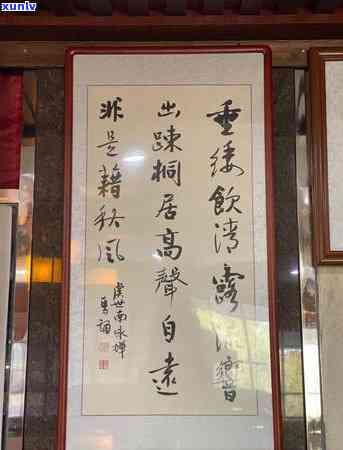 xunlv
垂緌飲清露流響
出疎桐居高聲自遠
非是藉秋風
虞世南咏蟬